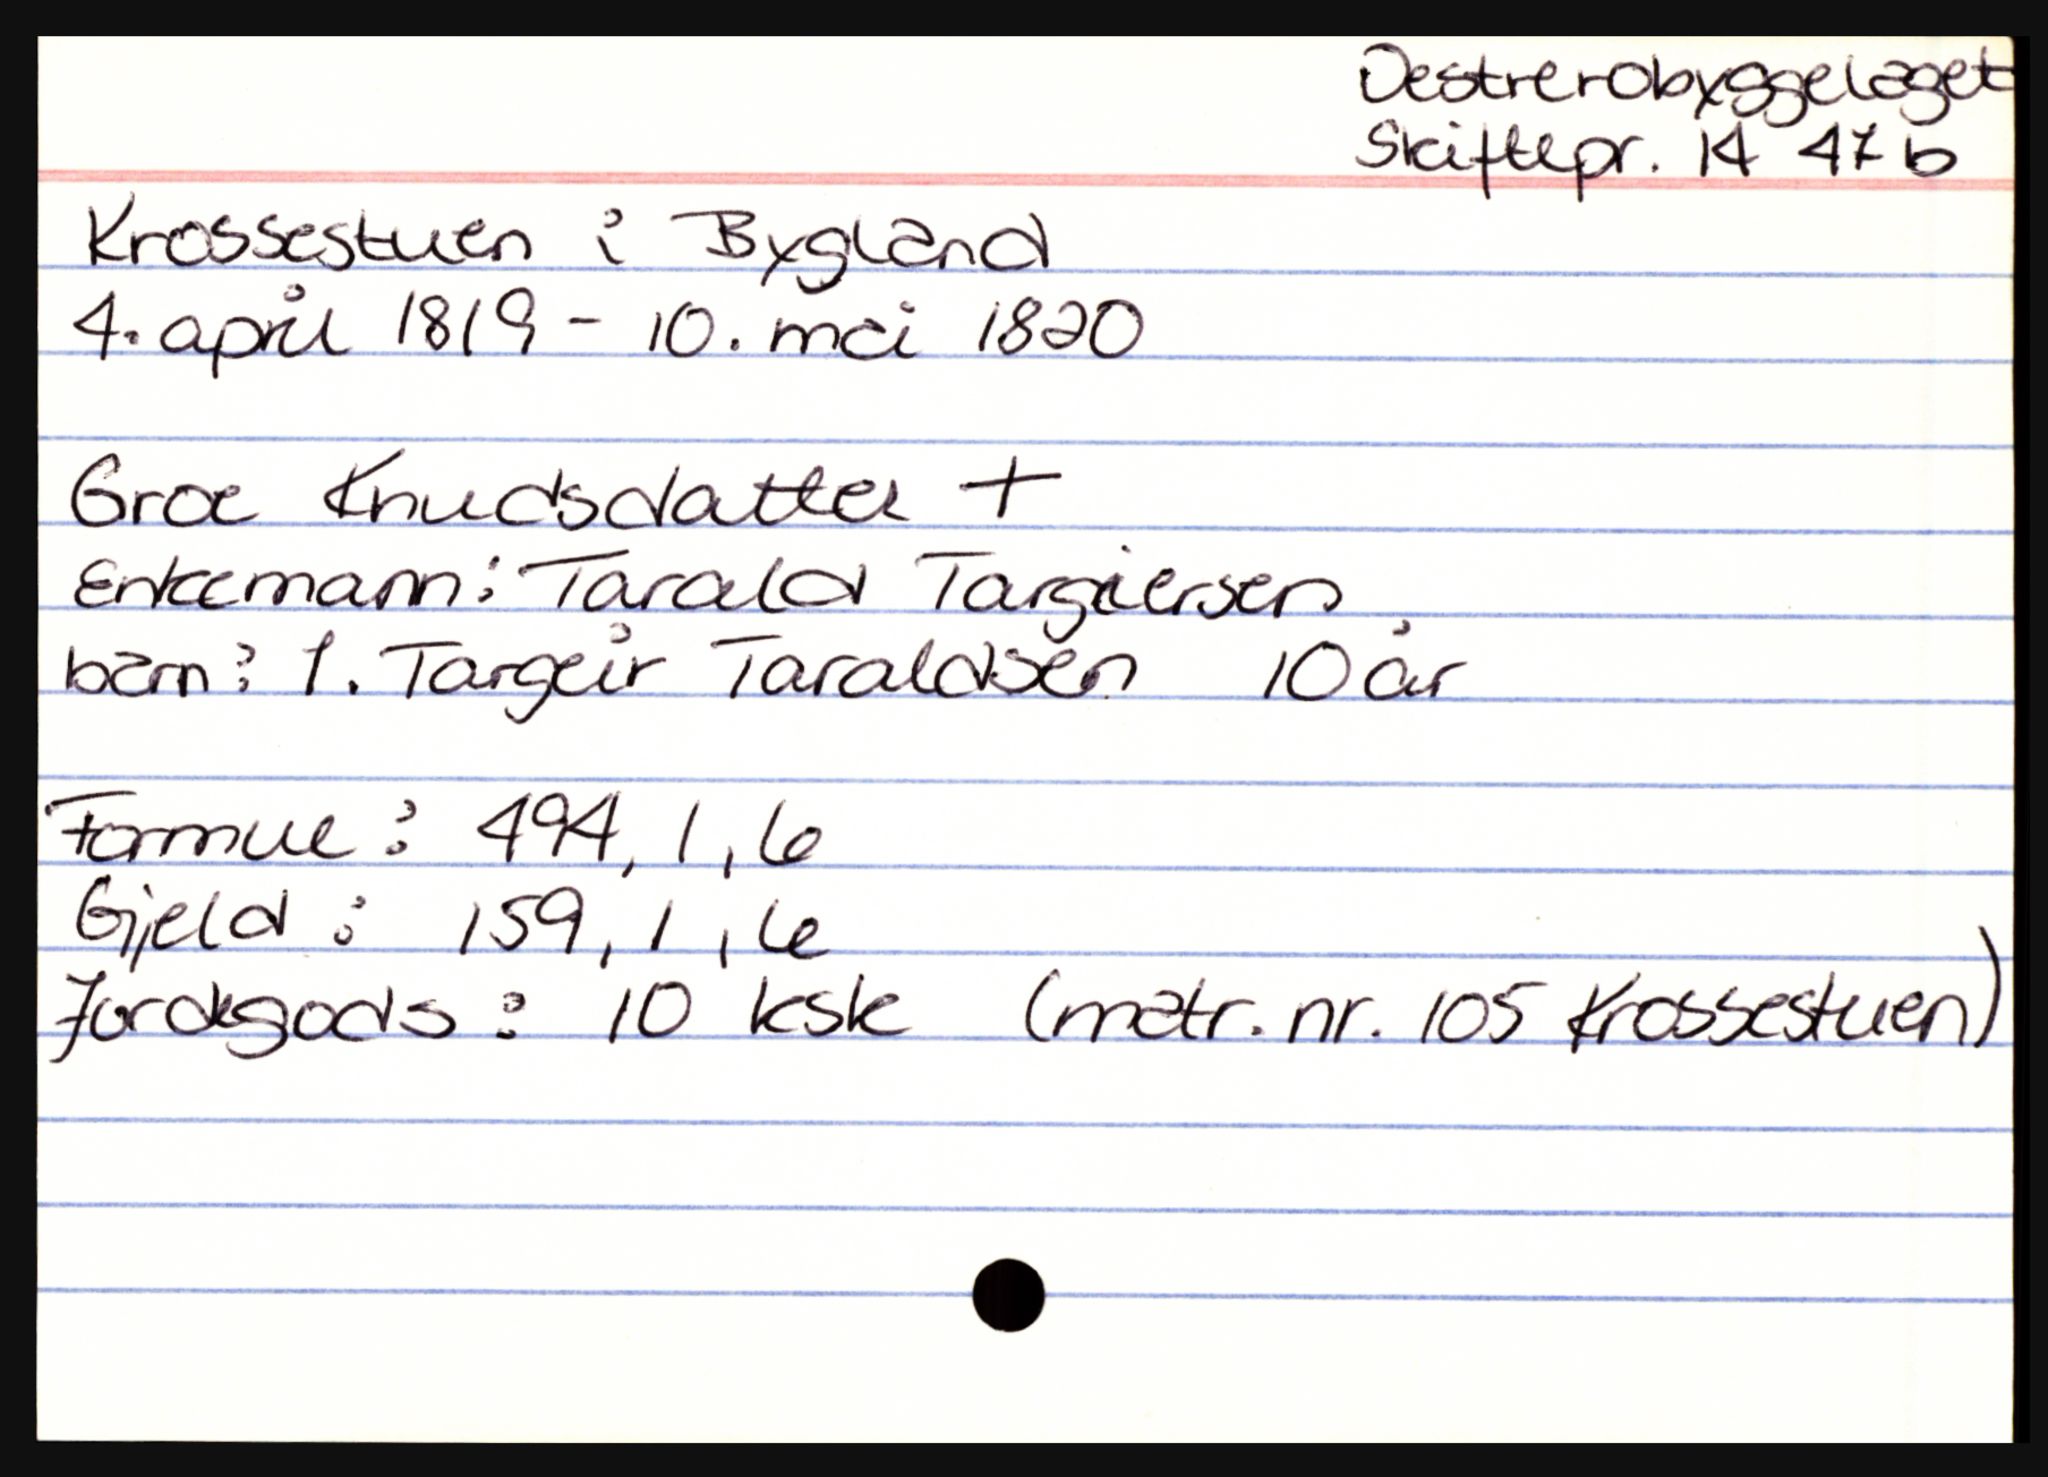 Oestrerobyggelaget
Skiftepr. 14 47 b
Krossestuen i Bygland
4. april 1819 - 10. mai 1820
Groe Knudsdatter +
Enkemann: Tarald Targiersen
barn: 1. Targeir Taraldsen 10 år
Formue: 494, 1, 6
Gjeld: 159, 1, 6
Jordegods: 10 ksk (matr. nr. 105 Krossestuen)